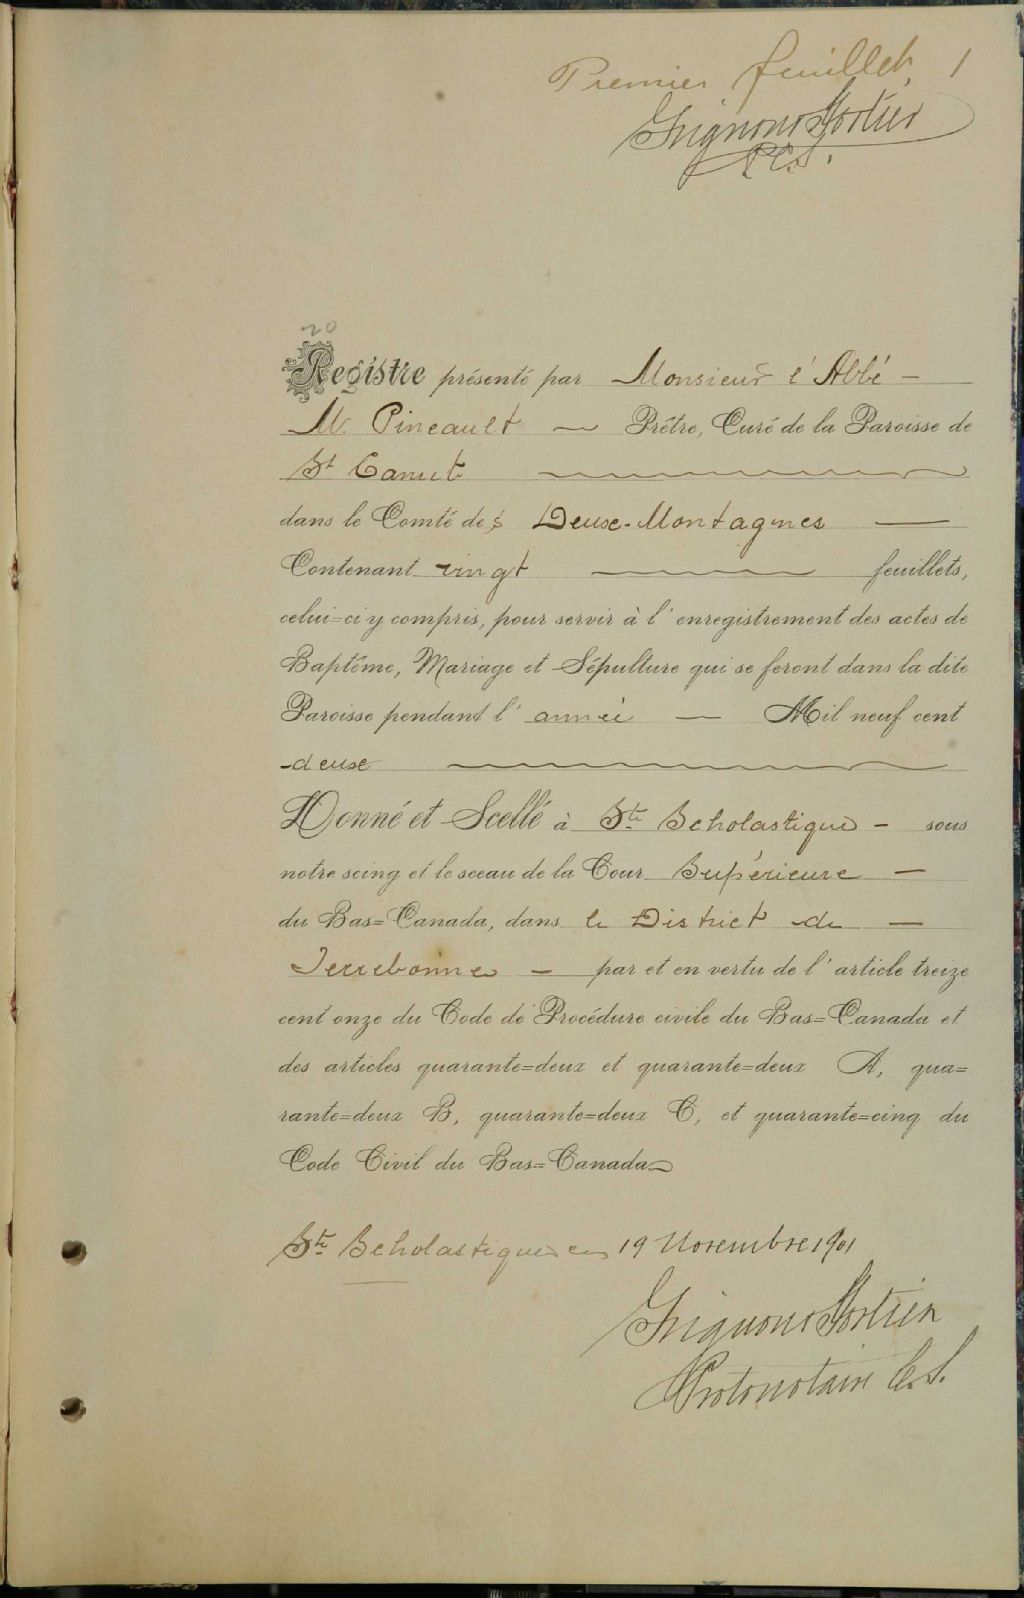 Premier feuillet 1
Grignon & Fortier
P.C.S.
20
Registre présenté par Monsieur l'Abbé
M. Pineault Prêtre, Curé de la Paroisse de
St Canut
dans le Comté des Deux-Montagnes
Contenant vingt feuillets,
celui=ci y compris, pour servir à l'enregistrement des actes de
Baptême, Mariage et Sépulture qui se feront dans la dite
Paroisse pendant l'année Mil neuf cent
deux
Donné et Scellé à Ste Scholastique sous
notre seing et le sceau de la Cour Supérieure
du Bas=Canada, dans le District de
Terrebonne par et en vertu de l'article treize
cent onze du Code de Procédure civile du Bas=Canada et
des articles quarante=deux et quarante=deux A, qua=
rante=deux B, quarante=deux C, et quarante=cinq du
Code Civil du Bas=Canada
Ste Scholastique ce 19 Novembre 1901
Grignon & Fortier
Protonotaire C.S.